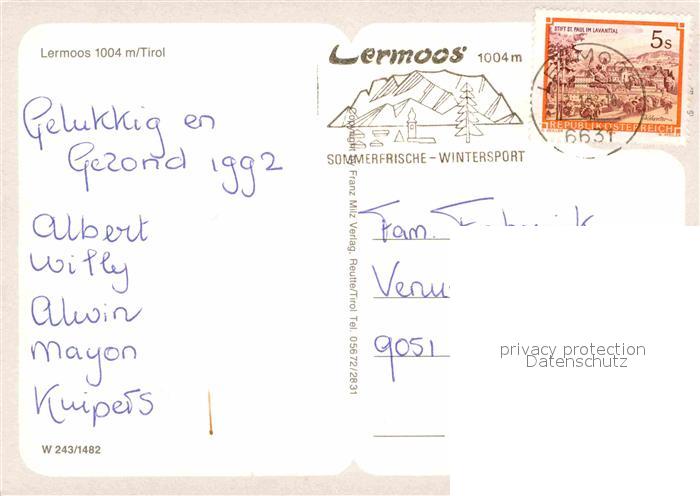 Lermoos 1004 m/Tirol
Gelukkig en
Gezond 1992
Albert
Willy
Alwin
Mayon
Kuipers
W 243/1482
Lermoos 1004 m
SOMMERFRISCHE - WINTERSPORT
STIFT ST. PAUL IM LAVANTTAL
5 S
REPUBLIK ÖSTERREICH
6631
Franz Milz Verlag, Reutte/Tirol Tel. 05672/2831
Fam.
9051
privacy protection
Datenschutz